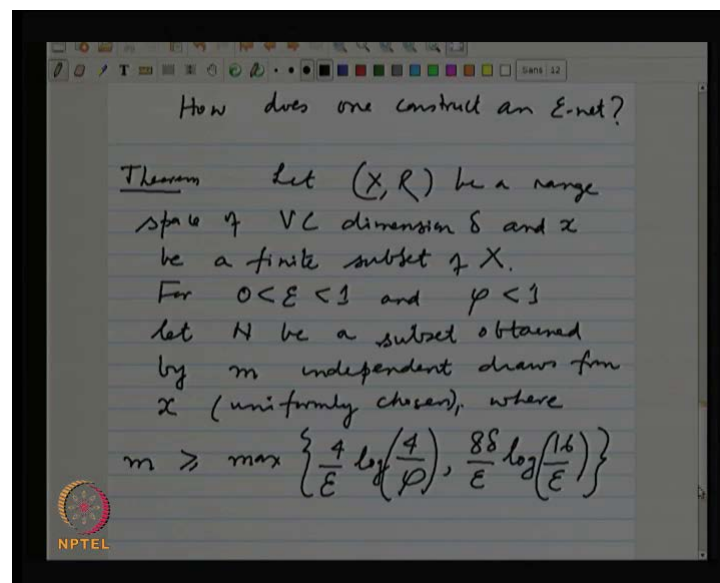 T
Sans 12
How does one construct an ε-net?
Theorem Let (X, R) be a range
space of VC dimension δ and x
be a finite subset of X.
For 0 < ε < 1 and φ < 1
let N be a subset obtained
by m independent draws from
x (uniformly chosen), where
m ≥ max { 4/ε log(4/φ), 8δ/ε log(16/ε) }
NPTEL